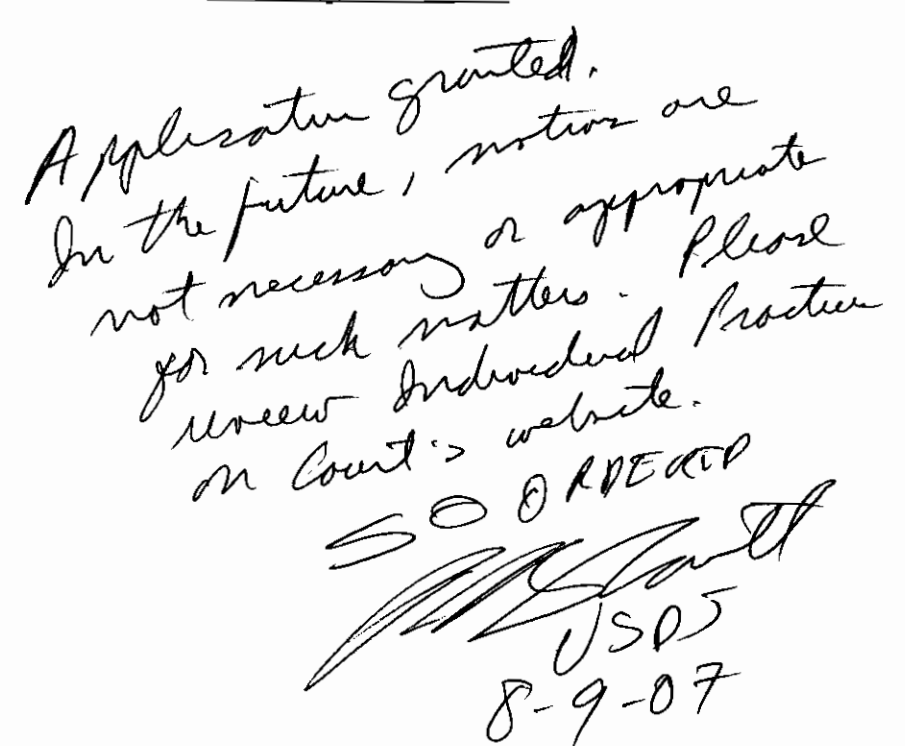 Application granted.
In the future, motions are
not necessary or appropriate
for such matters. Please
review Individual Practices
on Court's website.
SO ORDERED
USDJ
8-9-07